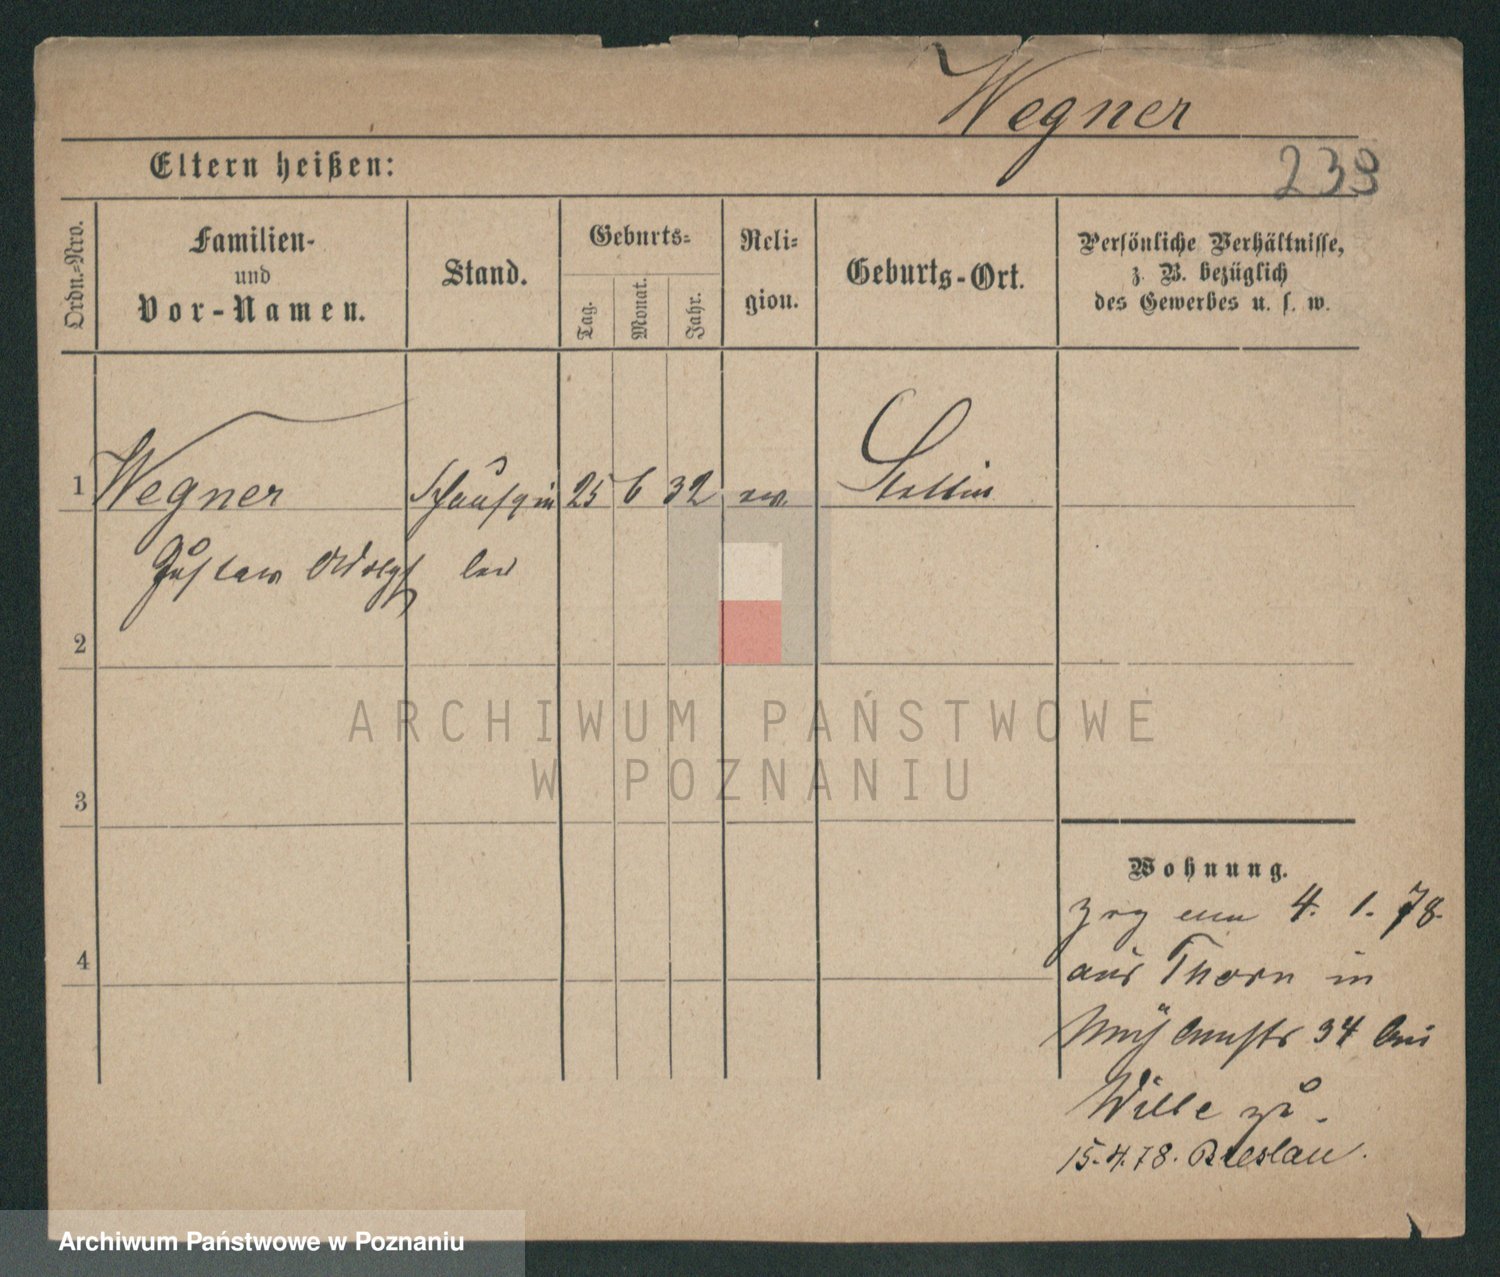 Wegner
Eltern heißen:
239
Ordn.-Nro.
Familien-
und
Vor-Namen.
Stand.
Geburts-
Tag.
Monat.
Jahr.
Reli-
gion.
Geburts-Ort.
Persönliche Verhältnisse,
z. B. bezüglich
des Gewerbes u. s. w.
1 Wegner Schauspie 25 6 32 ev. Stettin
Gustav Adolph ler
2
ARCHIWUM PAŃSTWOWE
W POZNANIU
3
Wohnung.
4. 1. 78.
4
aus Thorn in
Mühlenstr 34 bei
Wille zu.
15.4.78. Breslau.
Archiwum Państwowe w Poznaniu